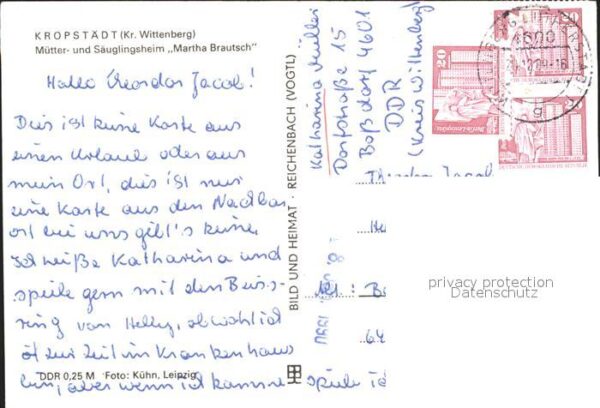 KROPSTÄDT (Kr. Wittenberg)
Mütter- und Säuglingsheim „Martha Brautsch"
Hallo Theodor Jacob!
Dies ist keine Karte aus
einen Urlaub oder aus
mein Ort, dies ist nur
eine Karte aus den Nachbar
ort bei uns gibt's keine.
Ich heiße Katharina und
spiele gern mit den Beiss-
ring von Helly, obwohl ich
zur Zeit im Krankenhaus
bin, aber wenn ich komme spiele ich
DDR 0,25 M Foto: Kühn, Leipzig
BILD UND HEIMAT · REICHENBACH (VOGTL)
Katharina Müller
Dorfstraße 15
Boßdorf 4601
DDR
(Kreis Wittenberg)
Theodor Jacob
64
20
20
Berlin-Leninplatz
DEUTSCHE DEMOKRATISCHE REPUBLIK
4600
g
privacy protection
Datenschutz